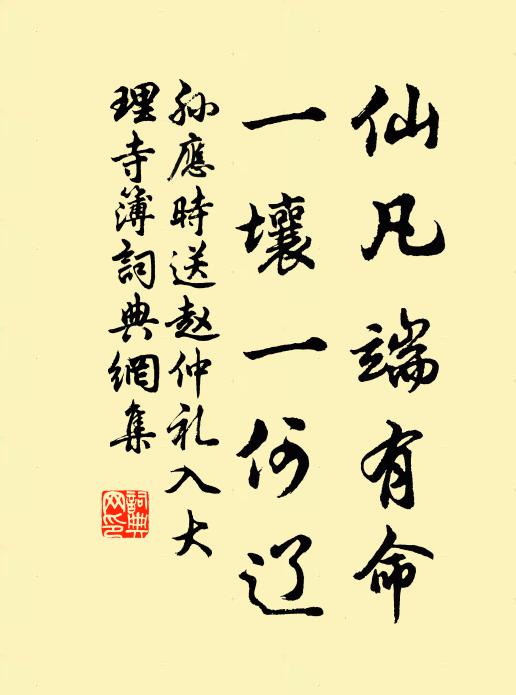 仙凡端有命
一壤一何辽
孙應時送赵仲礼入大
理寺簿詞典網集
詞典
网印